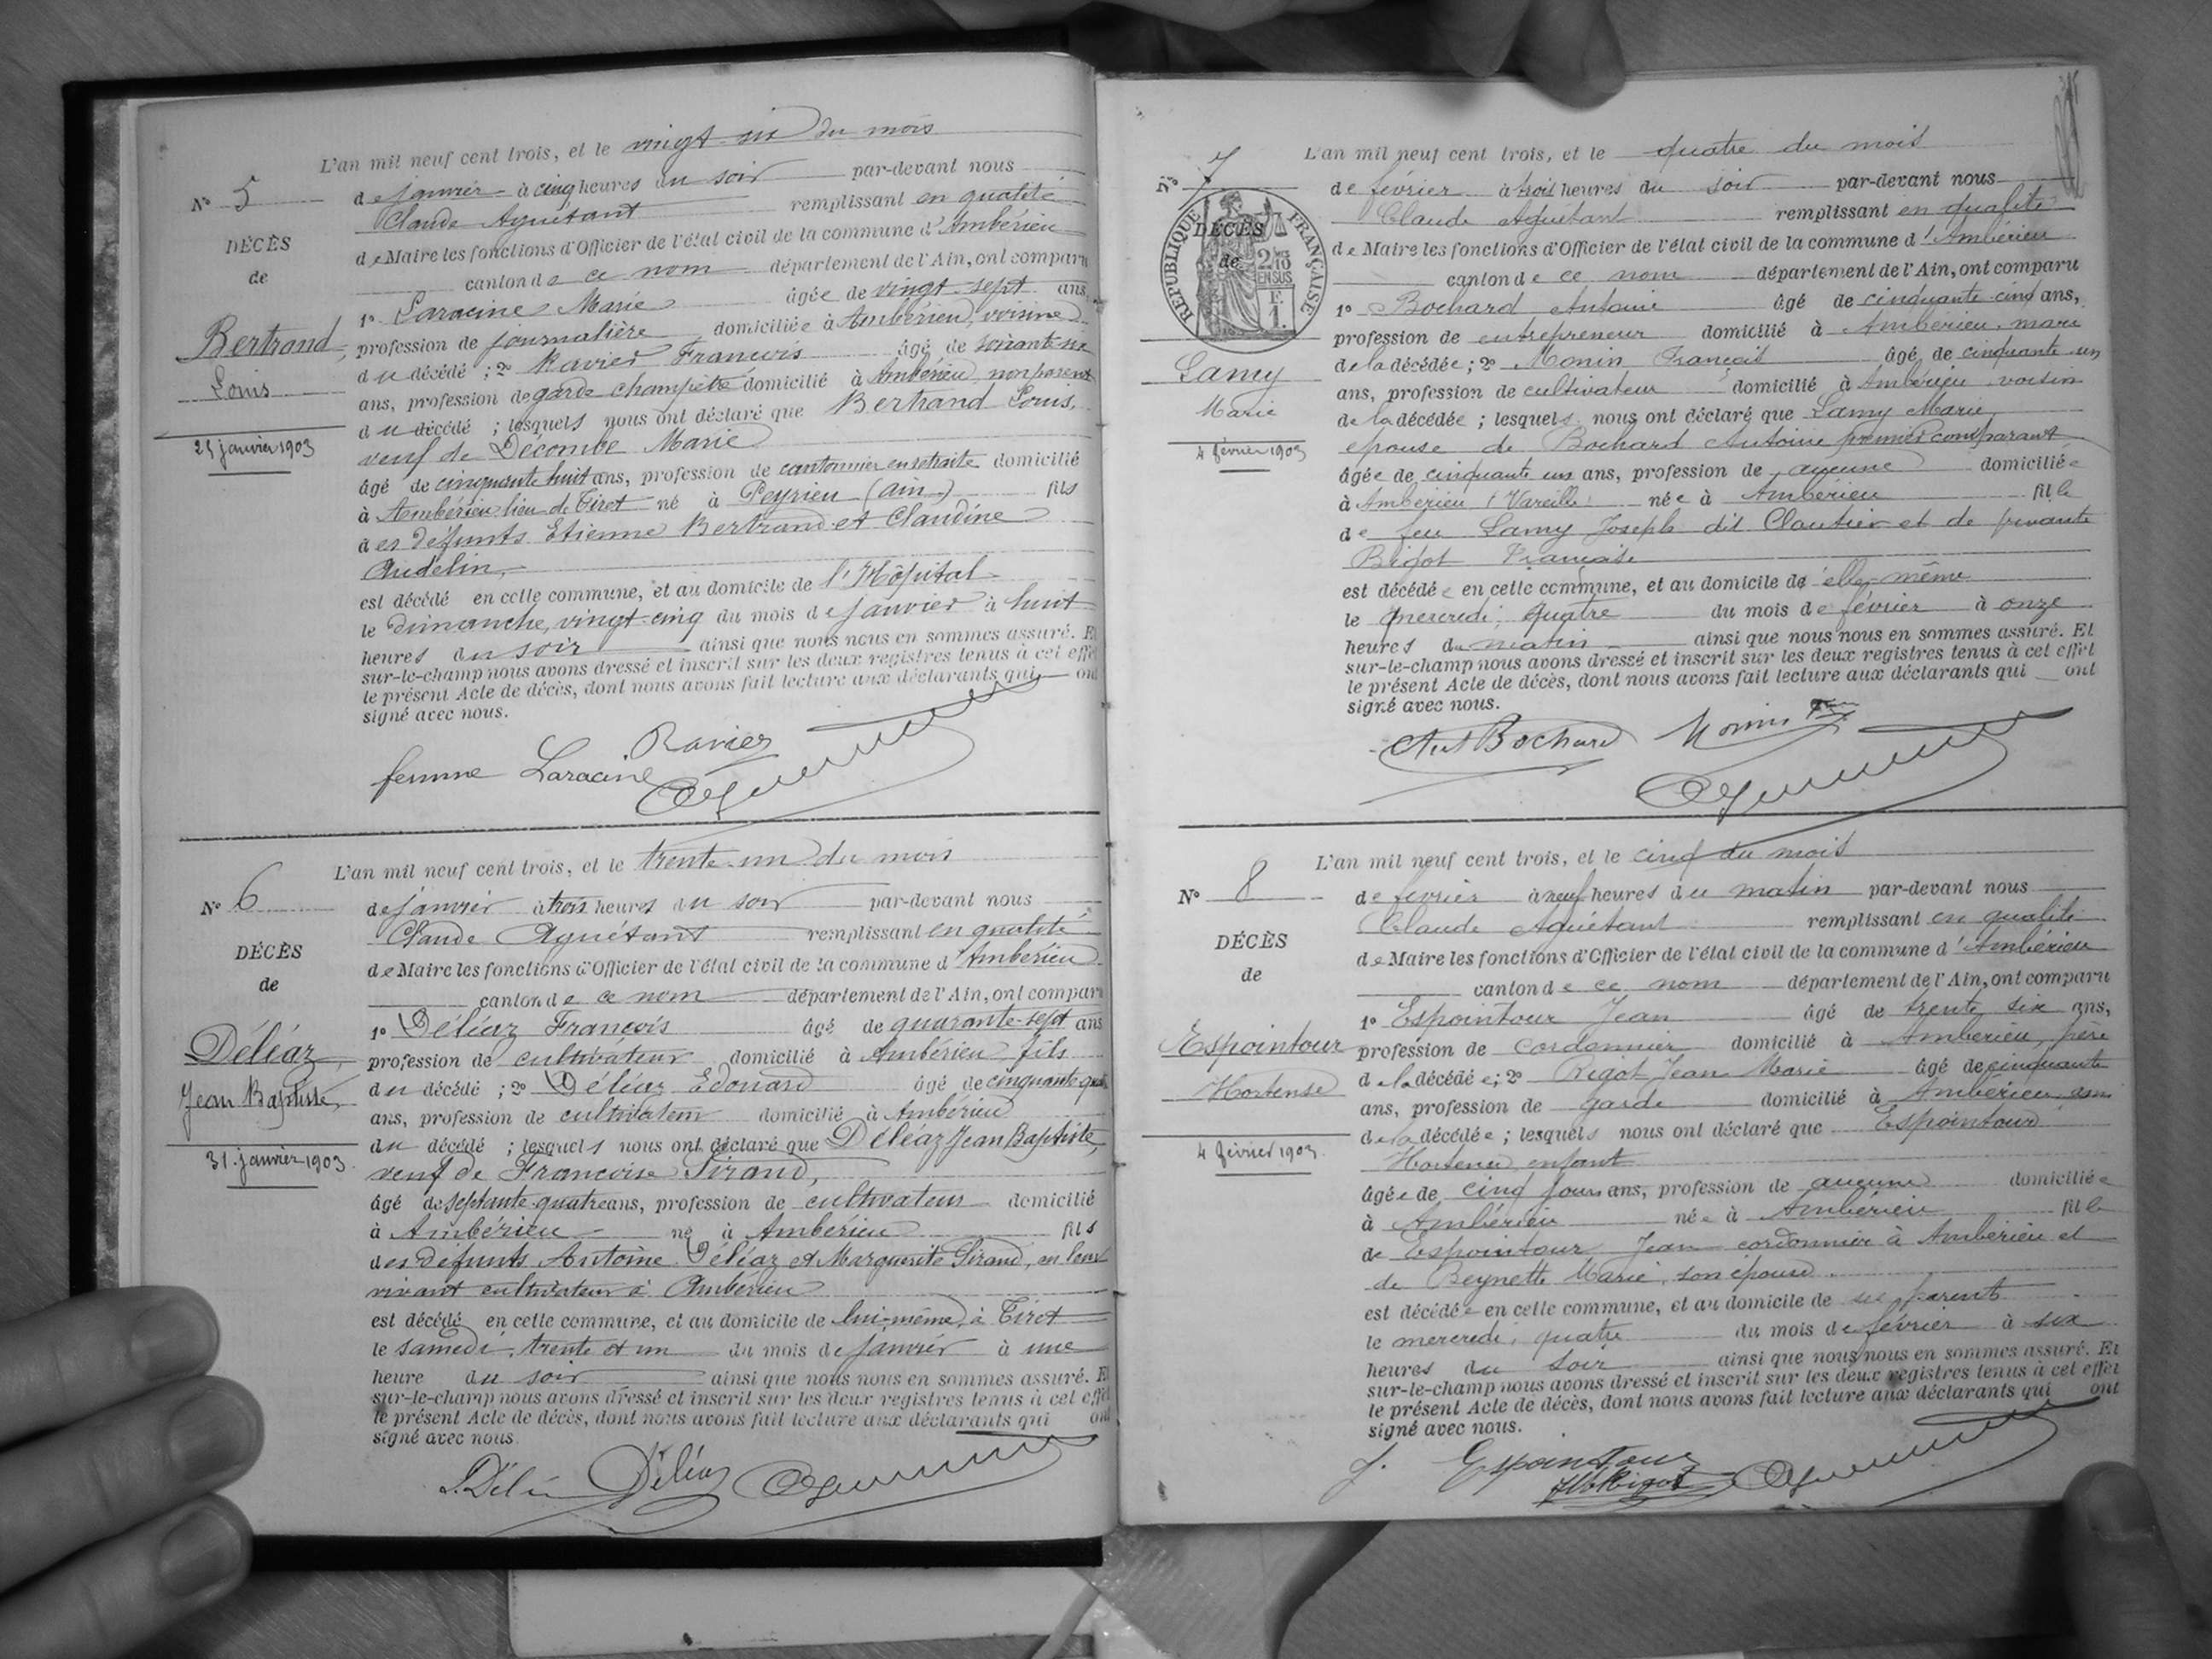 L'an mil neuf cent trois, et le vingt-six du mois
N° 5
de janvier à cinq heures du soir par-devant nous
Claude Aguétant remplissant en qualité
DÉCÈS
de Maire les fonctions d'Officier de l'état civil de la commune d'Ambérieu
de
canton de ce nom département de l'Ain, ont comparu
1° Laracine Marie âgée de vingt-sept ans,
Bertrand,
profession de journalière domiciliée à Ambérieu, voisine
du décédé ; 2° Ravier François âgé de soixante-six
Louis
ans, profession de garde champêtre domicilié à Ambérieu, non parent
du décédé ; lesquels nous ont déclaré que Bertrand Louis,
25 janvier 1903
veuf de Décombe Marie
âgé de cinquante huit ans, profession de cantonnier en retraite domicilié
à Ambérieu lieu de Tiret né à Peyrieu (Ain) fils
des défunts Etienne Bertrand et Claudine
Audelin,
est décédé en cette commune, et au domicile de l'Hôpital
le dimanche, vingt-cinq du mois de janvier à huit
heures du soir ainsi que nous nous en sommes assuré. Et
sur-le-champ nous avons dressé et inscrit sur les deux registres tenus à cet effet
le présent Acte de décès, dont nous avons fait lecture aux déclarants qui ont
signé avec nous.
Ravier
femme Laracine
L'an mil neuf cent trois, et le trente-un du mois
N° 6
de janvier à trois heures du soir par-devant nous
Claude Aguétant remplissant en qualité
DÉCÈS
de Maire les fonctions d'Officier de l'état civil de la commune d'Ambérieu
de
canton de ce nom département de l'Ain, ont comparu
1° Déléaz François âgé de quarante-sept ans
Déléaz,
profession de cultivateur domicilié à Ambérieu fils
du décédé ; 2° Déléaz Edouard âgé de cinquante
Jean Baptiste,
ans, profession de cultivateur domicilié à Ambérieu
du décédé ; lesquels nous ont déclaré que Déléaz Jean Baptiste,
31 janvier 1903
veuf de Françoise Sirand,
âgé de septante-quatre ans, profession de cultivateur domicilié
à Ambérieu né à Ambérieu fils
des défunts Antoine Déléaz et Marguerite Sirand, en leur
vivant cultivateur à Ambérieu
est décédé en cette commune, et au domicile de lui-même, à Tiret
le samedi, trente et un du mois de janvier à une
heure du soir ainsi que nous nous en sommes assuré. Et
sur-le-champ nous avons dressé et inscrit sur les deux registres tenus à cet effet
le présent Acte de décès, dont nous avons fait lecture aux déclarants qui ont
signé avec nous.
Déléaz
L'an mil neuf cent trois, et le quatre du mois
N° 7
de février à trois heures du soir par-devant nous
Claude Aguétant remplissant en qualité
RÉPUBLIQUE FRANÇAISE
DÉCÈS
2/10 EN SUS
de Maire les fonctions d'Officier de l'état civil de la commune d'Ambérieu
de
canton de ce nom département de l'Ain, ont comparu
1° Bochard Antoine âgé de cinquante-cinq ans,
profession de entrepreneur domicilié à Ambérieu, mari
Lamy
de la décédée ; 2° Monin François âgé de cinquante-un
ans, profession de cultivateur domicilié à Ambérieu voisin
Marie
de la décédée ; lesquels nous ont déclaré que Lamy Marie,
4 février 1903
épouse de Bochard Antoine premier comparant
âgée de cinquante un ans, profession de aucune domiciliée
à Ambérieu (Vareilles) née à Ambérieu fille
de feu Lamy Joseph dit Cloutier et de vivante
Bigot Française
est décédée en cette commune, et au domicile de elle-même
le mercredi, quatre du mois de février à onze
heures du matin ainsi que nous nous en sommes assuré. Et
sur-le-champ nous avons dressé et inscrit sur les deux registres tenus à cet effet
le présent Acte de décès, dont nous avons fait lecture aux déclarants qui ont
signé avec nous.
Ant Bochard Monin
L'an mil neuf cent trois, et le cinq du mois
N° 8
de février à neuf heures du matin par-devant nous
Claude Aguétant remplissant en qualité
DÉCÈS
de Maire les fonctions d'Officier de l'état civil de la commune d'Ambérieu
de
canton de ce nom département de l'Ain, ont comparu
1° Espointour Jean âgé de trente six ans,
Espointour
profession de cordonnier domicilié à Ambérieu, père
de la décédée ; 2° Rigot Jean Marie âgé de cinquante
Hortense
ans, profession de garde domicilié à Ambérieu, ami
de la décédée ; lesquels nous ont déclaré que Espointour
4 février 1903
Hortense, enfant
âgée de cinq jours ans, profession de aucune domiciliée
à Ambérieu née à Ambérieu fille
de Espointour Jean cordonnier à Ambérieu et
de Beynette Marie, son épouse
est décédée en cette commune, et au domicile de ses parents
le mercredi, quatre du mois de février à six
heures du soir ainsi que nous nous en sommes assuré. Et
sur-le-champ nous avons dressé et inscrit sur les deux registres tenus à cet effet
le présent Acte de décès, dont nous avons fait lecture aux déclarants qui ont
signé avec nous.
J. Espointour
JM Rigot